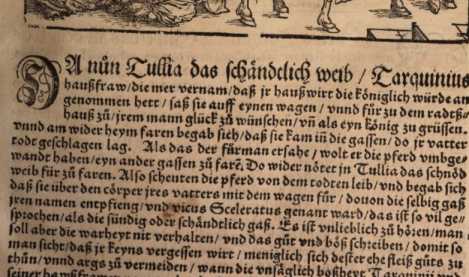 DA nůn Tullia das schändtlich weib / Tarquinius
haußfraw / die mer vernam / daß jr haußwirt die königlich würde an
genommen hett / saß sie auff eynen wagen / vnnd für zů dem radtß-
hauß zů / jrem mann glück zů wünschen / vñ als eyn könig zů grüssen.
vnnd am wider heym faren begab sich / daß sie kam iñ die gassen / do jr vatter
todt geschlagen lag. Als das der fürman ersahe / wolt er die pferd vmbge-
wandt haben / eyn ander gassen zů farē. Do wider nötet in Tullia das schnöd
weib für zů faren. Also scheuten die pferd von dem todten leib / vnd begab sich
daß sie über den cörper jres vatters mit dem wagen für / douon die selbig gaß
jren namen entpfieng / vnd vicus Sceleratus genant ward / das ist so vil ge-
sprochen / als die sündig oder schändtlich gaß. Es ist vnlieblich zů hören / man
soll aber die warheyt nit verhalten / vnd das gůt vnd böß schreiben / domit so
man sicht / daß jr keyns vergessen wirt / meniglich sich dester ehe fleiß gůts zů
thůn / vnnd args zů vermeiden / wann die vnsäglich boßheyt Tarquini
seiner